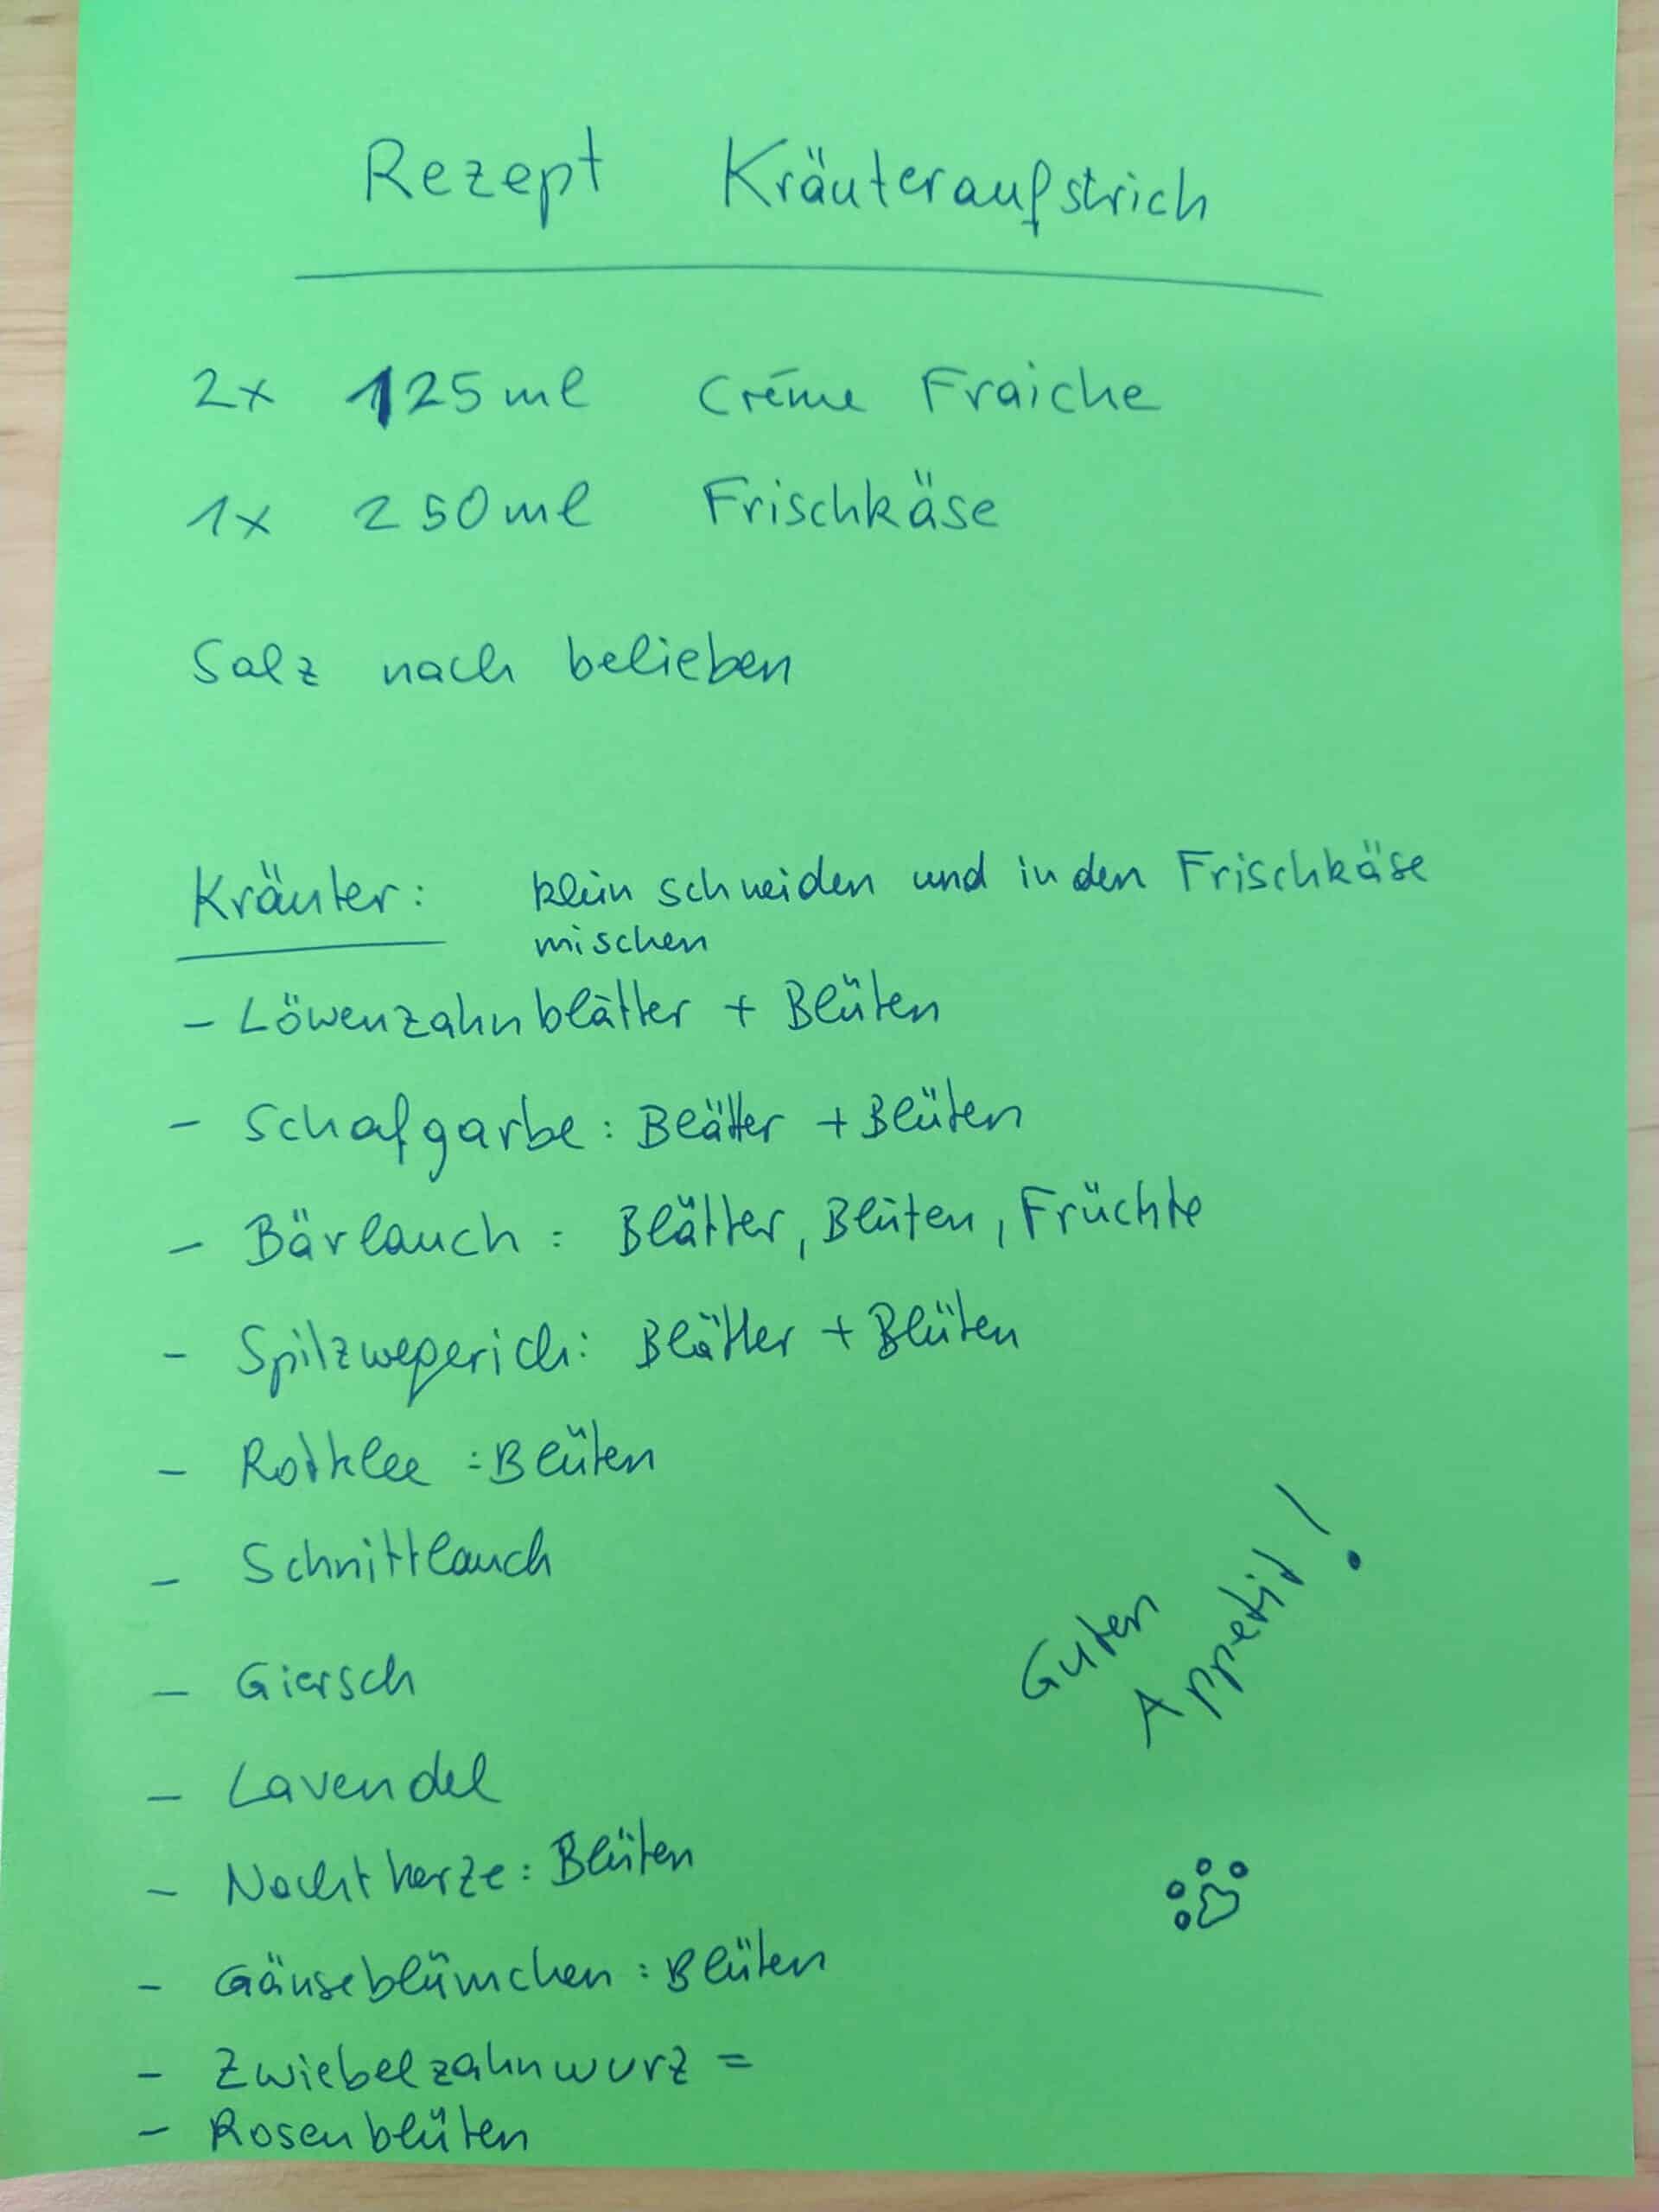 Rezept Kräuteraufstrich
2x 125ml Créme Fraiche
1x 250ml Frischkäse
Salz nach belieben
Kräuter: klein schneiden und in den Frischkäse
mischen
- Löwenzahnblätter + Blüten
- Schafgarbe: Blätter + Blüten
- Bärlauch: Blätter, Blüten, Früchte
- Spitzwegerich: Blätter + Blüten
- Rotklee: Blüten
- Schnittlauch
- Giersch
- Lavendel
- Nachtkerze: Blüten
- Gänseblümchen: Blüten
- Zwiebelzahnwurz =
- Rosenblüten
Guten
Appetit!